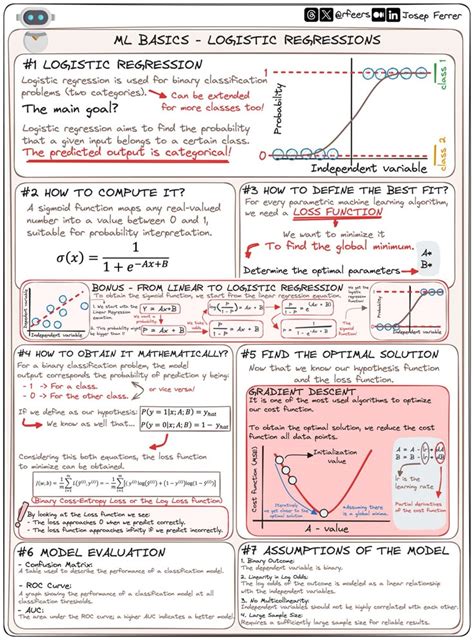 @rfeers
Josep Ferrer
ML BASICS - LOGISTIC REGRESSIONS
#1 LOGISTIC REGRESSION
Logistic regression is used for binary classification
problems (two categories).
Can be extended
for more classes too!
The main goal?
Logistic regression aims to find the probability
that a given input belongs to a certain class.
The predicted output is categorical!
Probability
1
0
Independent variable
class 1
class 2
#2 HOW TO COMPUTE IT?
A sigmoid function maps any real-valued
number into a value between 0 and 1,
suitable for probability interpretation.
σ(x) = 1 / (1 + e^(-Ax+B))
#3 HOW TO DEFINE THE BEST FIT?
For every parametric machine learning algorithm,
we need a LOSS FUNCTION
We want to minimize it
To find the global minimum.
Determine the optimal parameters
A*
B*
BONUS - FROM LINEAR TO LOGISTIC REGRESSION
To obtain the sigmoid function, we start from the linear regression equation.
Independent variable
1. We start with the
Linear Regression
Equation.
y = Ax+B
2. This probability might
be bigger than 1!
We get the
logistic
regression
function!
Independent variable
#4 HOW TO OBTAIN IT MATHEMATICALLY?
For a binary classification problem, the model
output corresponds the probability of prediction y being:
- 1 → For a class.
- 0 → For the other class.
or vice versa!
If we define as our hypothesis:
We know as well that...
P(y = 1|x; A; B) = yhat
P(y = 0|x; A; B) = 1 - yhat
Considering this both equations, the loss function
to minimize can be obtained.
Binary Cross-Entropy Loss or the Log Loss function
By looking at the Loss function we see:
- The loss approaches 0 when we predict correctly.
- The loss function approaches infinity if we predict incorrectly.
#5 FIND THE OPTIMAL SOLUTION
Now that we know our hypothesis function
and the loss function:
GRADIENT DESCENT
It is one of the most used algorithms to optimize
our cost function.
To obtain the optimal solution, we reduce the cost
function all data points.
Cost function (MSE)
Initialization
value
Iteratively
we get closer to the
optimal solution!
Assuming there
is a global minima.
A - value
It is
the learning
rate
Partial derivatives
of the cost function
#6 MODEL EVALUATION
- Confusion Matrix:
A table used to describe the performance of a classification model.
- ROC Curve:
A graph showing the performance of a classification model at all
classification thresholds.
- AUC:
The area under the ROC curve; a higher AUC indicates a better model.
#7 ASSUMPTIONS OF THE MODEL
1. Binary Outcome:
The dependent variable is binary.
2. Linearity in Log Odds:
The log odds of the outcome is modeled as a linear relationship
with the independent variables.
3. No Multicollinearity:
Independent variables should not be highly correlated with each other.
4. Large Sample Size:
Requires a sufficiently large sample size for reliable results.